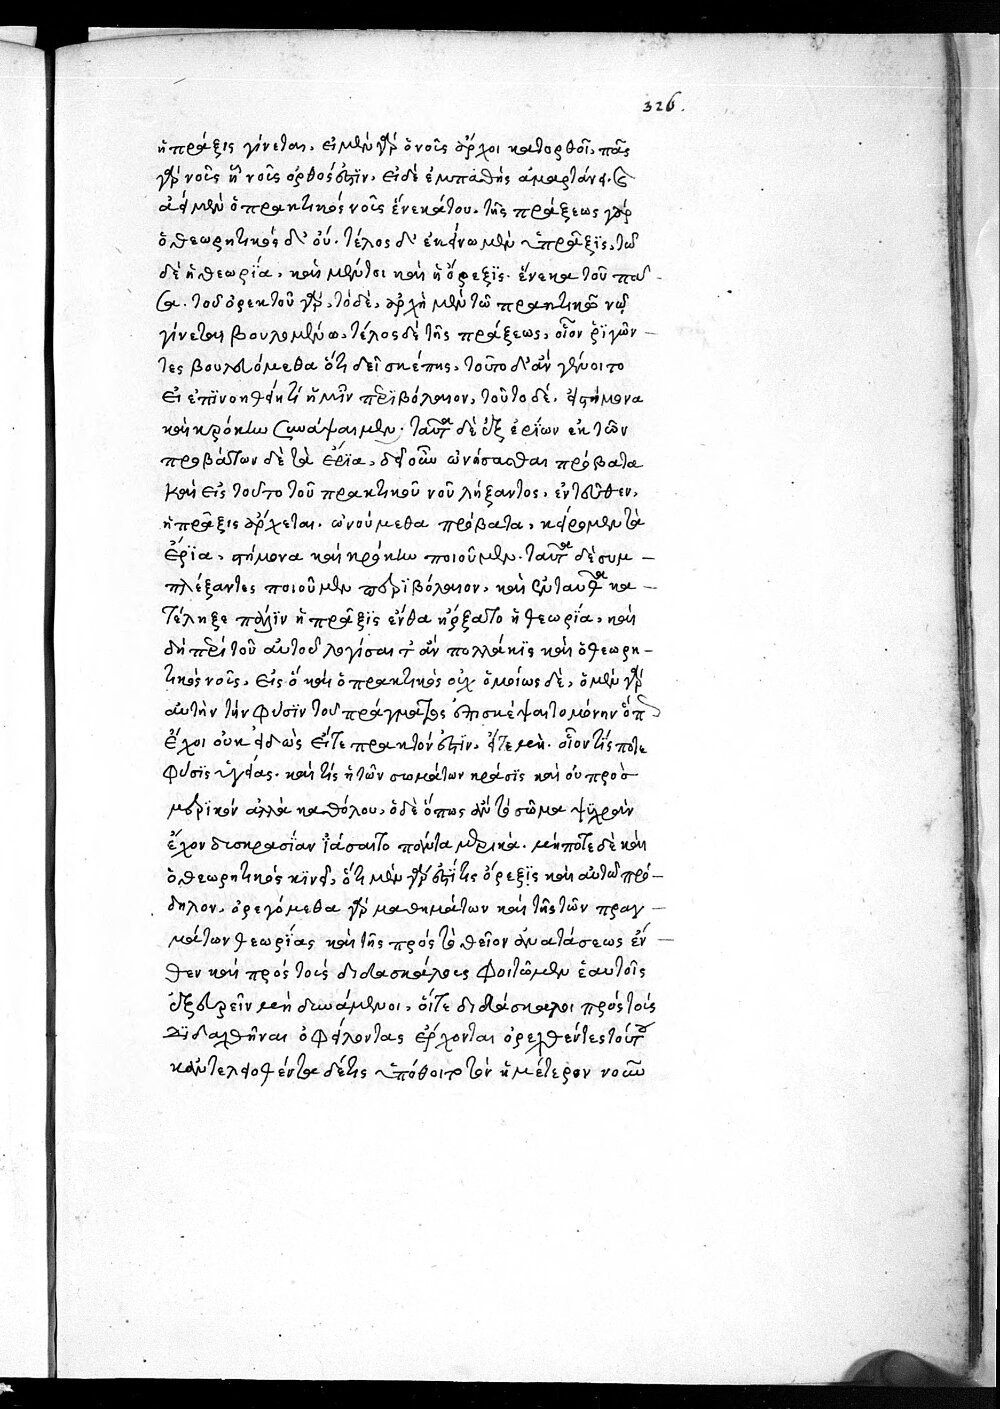 326.
ἡ πρᾶξις γίνεται. εἰ μὲν γὰρ ὁ νοῦς ἄρχοι κατορθοῖ, πᾶς
γὰρ νοῦς ᾗ νοῦς ὀρθός ἐστϊν. εἰ δὲ ἐμπαθὴς ἁμαρτάνει.
ἀεὶ μὲν ὁ πρακτικὸς νοῦς ἕνεκά του. τῆς πράξεως γὰρ
ὁ θεωρητικὸς δ' οὔ. τέλος δ' ἐκείνω μὲν ἡ πρᾶξϊς, τῶ
δὲ ἡ θεωρία, καὶ μέντοι καὶ ἡ ὄρεξϊς. ἕνεκα του πᾶσα
τοῦ ὀρεκτοῦ γάρ, τὸ δὲ, ἀρχὴ μὲν τῶ πρακτικῶ νῶ
γίνεται βουλομένω, τέλος δὲ τῆς πράξεως, οἷον ῥϊγῶν –
τες βουλευόμεθα ὅτι δεῖ σκέπης, τοῦτο δ' ἂν γένοιτο
εἰ ἐπϊνοηθείη τί ἡμῖν περϊβόλαιον, τοῦτο δέ, εἰ στήμονα
καὶ κρόκην συνάψαιμεν. ταῦτα δὲ ἐξ ἐρΐων ἐκ τῶν
προβάτων δὲ τὰ ἔρϊα, δεῖ οὖν ὠνήσασθαι πρόβατα
καὶ εἰς τοῦτο τοῦ πρακτικοῦ νοῦ λήξαντος, ἐντεῦθεν,
ἡ πρᾶξις ἄρχεται. ὠνούμεθα πρόβατα, κείρομεν τὰ
ἔρϊα, στήμονα καὶ κρόκην ποιοῦμεν. ταῦτα δὲ συμ –
πλέξαντες ποιοῦμεν περϊβόλαιον, καὶ ἐνταῦθα κα –
τέληξε πάλϊν ἡ πρᾶξϊς ἔνθα ἤρξατο ἡ θεωρία, καὶ
δὴ περὶ τοῦ αὐτοῦ λογίσαιτ' ἂν πολλάκϊς καὶ ὁ θεωρη –
τικὸς νοῦς, εἰς ὃ καὶ ὁ πρακτικὸς οὐχ ὁμοίως δέ, ὁ μὲν γὰρ
αὐτὴν τὴν φύσϊν τοῦ πράγματος ἐπισκέψαιτο μόνην ὅπ
ἔχοι οὐκ εἰδὼς εἴτε πρακτόν ἐστϊν, εἴτε μὴ. οἷον τίς ποτε
φύσϊς ὑγείας. καὶ τίς ἡ τῶν σωμάτων κρᾶσϊς καὶ οὐ πρὸς
μερϊκὸν ἀλλὰ καθόλου, ὁ δὲ ὅπως ἂν τὸ σῶμα ψϋχρὰν
ἔχον δυσκρασΐαν ϊάσαιτο πάντα μερικά. μήποτε δὲ καὶ
ὁ θεωρητικὸς κϊνεῖ, ὅτι μὲν γὰρ ἐστί τις ὄρεξις καὶ αὐτῶ πρό –
δηλον, ὀρεγόμεθα γὰρ μαθημάτων καὶ τῆς τῶν πραγ –
μάτων θεωρίας καὶ τῆς πρὸς τὸ θεῖον ἀνατάσεως ἔν –
θεν καὶ πρὸς τοὺς διδασκάλους φοιτῶμεν ἑαυτοῖς
ἐξευρεῖν μὴ δυνάμενοι, οἵτε διδάσκαλοι πρὸς τοὺς
διδαχθῆναι ὀφείλοντας ἔρχονται ὀρεχθέντες τούτ
καὶ ἐντελφοθέντα δέ τις ὑπόθοιτο τὸν ἡμέτερον νοῦν